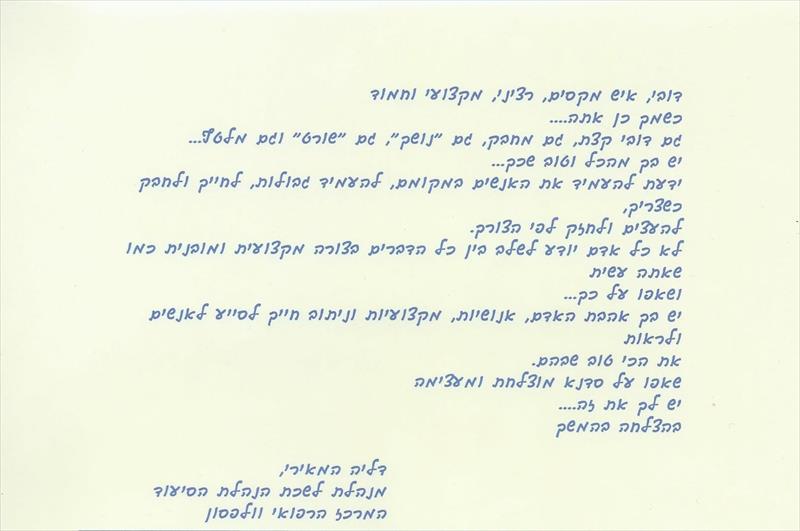 דובי, איש מקסים, רציני, מקצועי וחמוד
כשמך כן אתה....
גם דובי קצת, גם מחבק, גם "נושך", גם "שורט" וגם מלטף...
יש בך מהכל וטוב שכך...
ידעת להעמיד את האנשים במקומם, להעמיד גבולות, לחייך ולחבק
כשצריך,
להעצים ולחזק לפי הצורך.
לא כל אדם יודע לשלב בין כל הדברים בצורה מקצועית ומובנית כמו
שאתה עשית
ושאפו על כך...
יש בך אהבת האדם, אנושיות, מקצועיות וניתוב חייך לסייע לאנשים
ולראות
את הכי טוב שבהם.
שאפו על סדנא מוצלחת ומעצימה
יש לך את זה....
בהצלחה בהמשך
דליה המאירי,
מנהלת לשכת הנהלת הסיעוד
המרכז הרפואי וולפסון